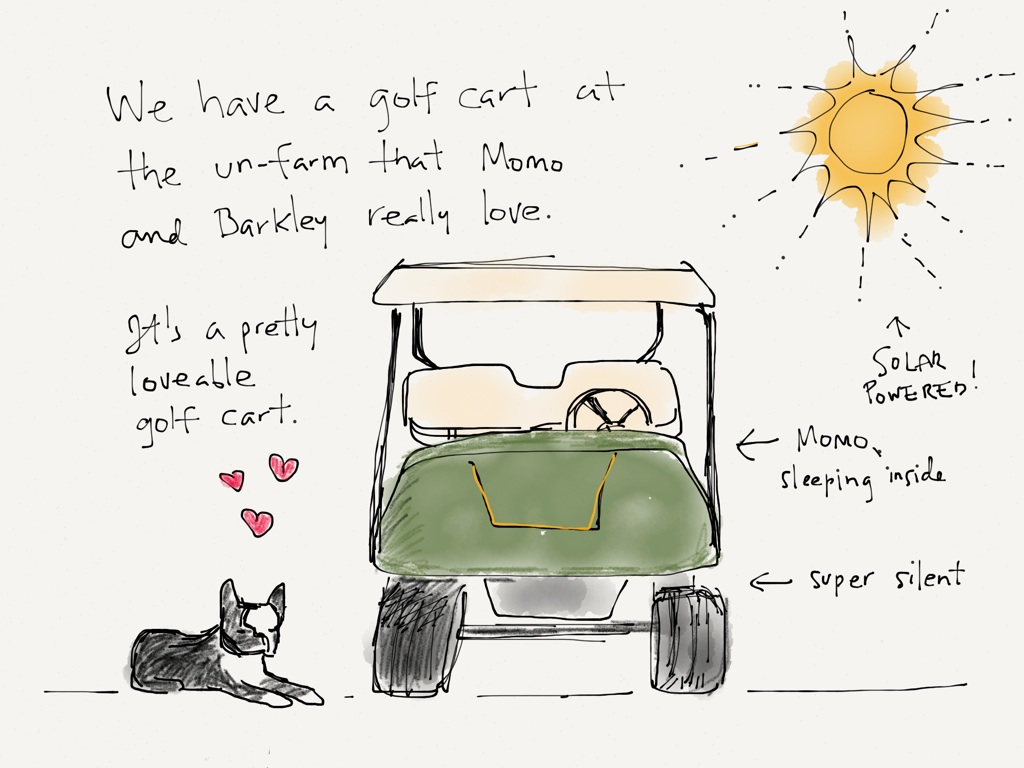 We have a golf cart at
the un-farm that Momo
and Barkley really love.
It's a pretty
loveable
golf cart.
SOLAR
POWERED!
MOMO,
sleeping inside
super silent